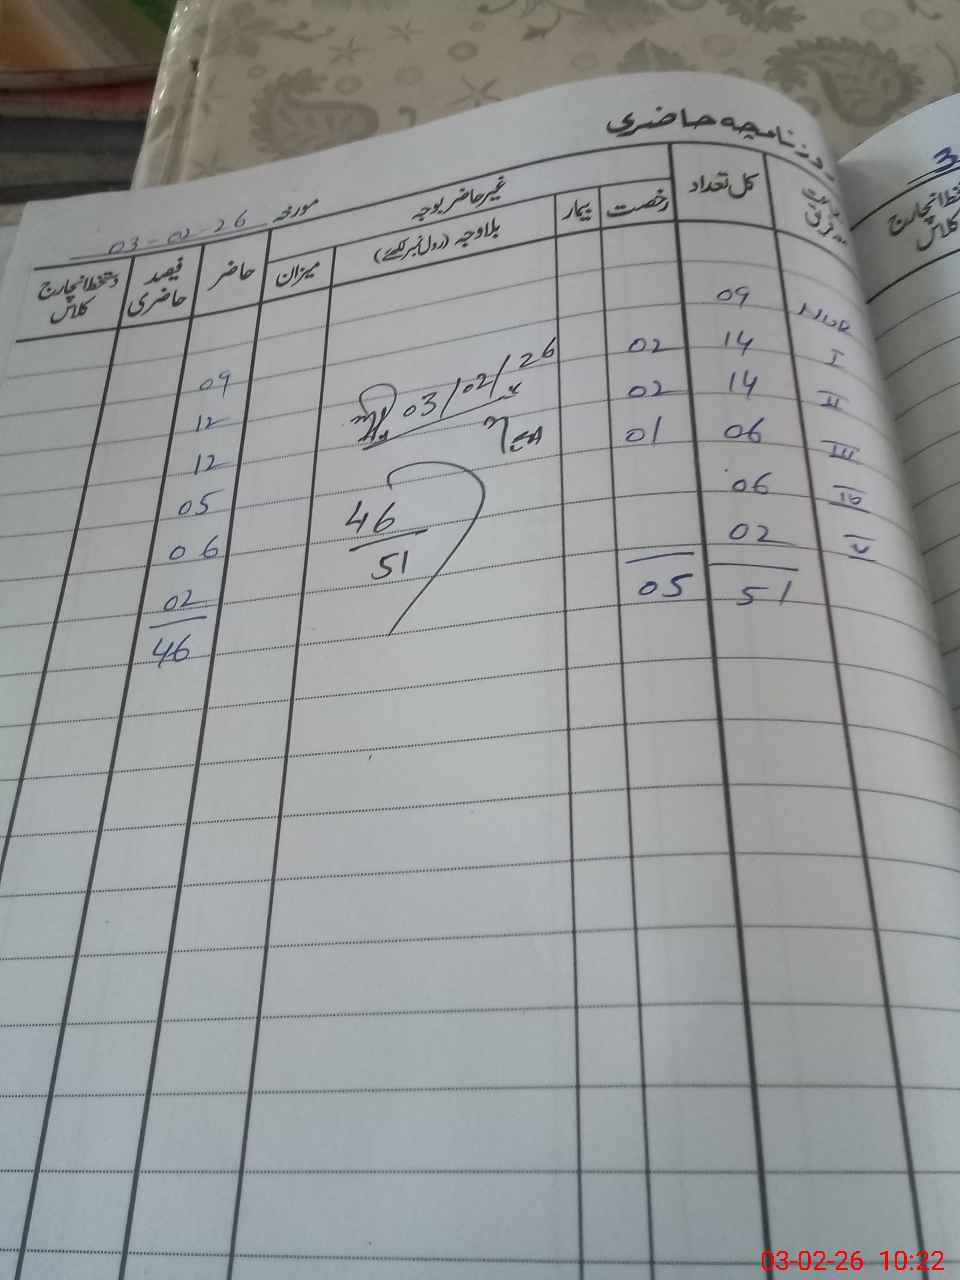 روزنامچہ حاضری
مورخہ 03-02-26
کل تعداد
غیر حاضر بوجہ
رخصت
بیمار
بلاوجہ (رول نمبر لکھیے)
میزان
حاضر
فیصد حاضری
دستخط انچارج کلاس
NUR 09 09
I 14 02 12
II 14 02 12
III 06 01 05
IV 06 06
V 02 02
51 05 46
03/02/26
46
51
3
انچارج
کلاس
03-02-26 10:22